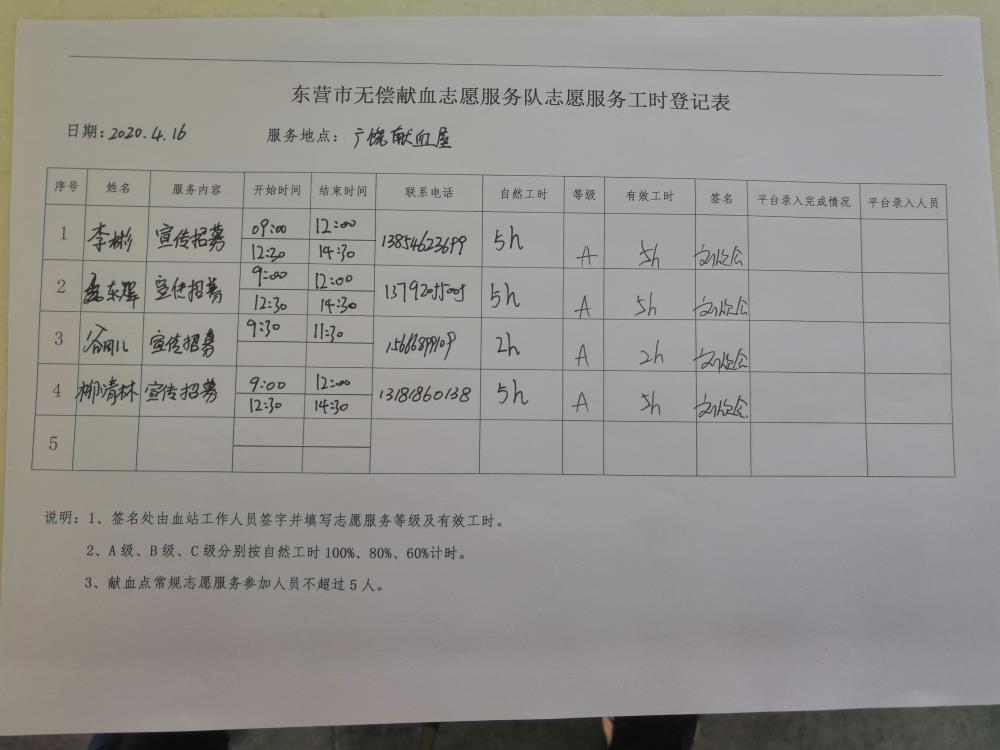 东营市无偿献血志愿服务队志愿服务工时登记表
日期:2020.4.16 服务地点:广饶献血屋
序号 姓名 服务内容 开始时间 结束时间 联系电话 自然工时 等级 有效工时 签名 平台录入完成情况 平台录入人员
1 李彬 宣传招募 09:00 12:00 13854623699 5h A 5h
12:30 14:30
2 东辉 宣传招募 9:00 12:00 13792055005 5h A 5h
12:30 14:30
3 宣传招募 9:30 11:30 2h A 2h
4 柳清林 宣传招募 9:00 12:00 13181860138 5h A 5h
12:30 14:30
5
说明:1、签名处由血站工作人员签字并填写志愿服务等级及有效工时。
2、A级、B级、C级分别按自然工时100%、80%、60%计时。
3、献血点常规志愿服务参加人员不超过5人。